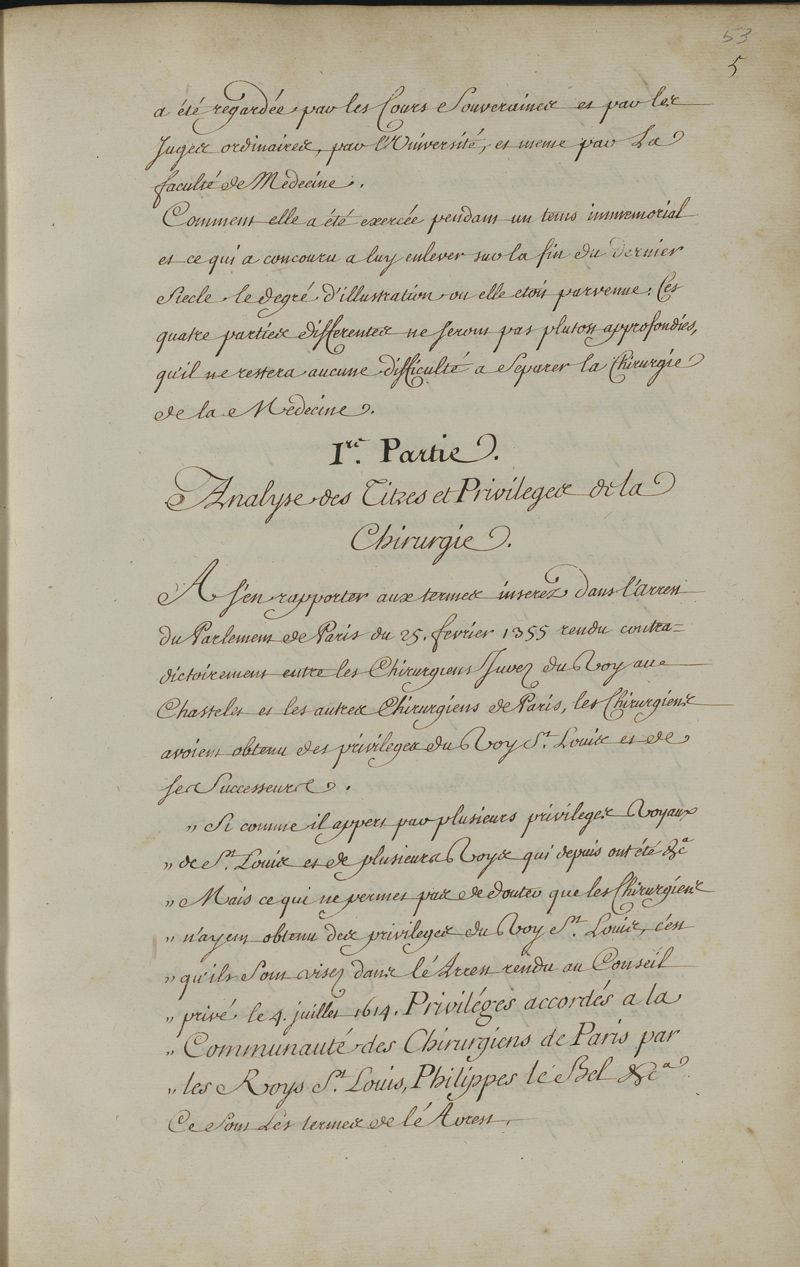 53
5
a été regardée par les Cours Souveraines et par les
Juges ordinaires, par l'Université, et meme par La
faculté de Médecine.
Comment elle a été exercée pendant un tems immemorial
et ce qui a concouru a luy enlever sur la fin du dernier
Siecle le degré d'illustration ou elle etoit parvenue. Ces
quatre parties differentes ne seront pas plutost approfondies,
qu'il ne restera aucune difficulté a Séparer la Chirurgie
de la Médecine.
I.re Partie.
Analyse des Titres et Privileges de la
Chirurgie.
A s'en rapporter aux termes inseréz dans l'arrest
du Parlement de Paris du 25. fevrier 1355 rendu contra=
dictoirement entre les Chirurgiens Jurez du Roy au
Chastelet et les autres Chirurgiens de Paris, les Chirurgiens
avoient obtenu des privileges du Roy S.t Louis et de
ses Successeurs.
" Si comme il appert par plusieurs privileges Royaux
" de S.t Louis et de plusieurs Roys qui depuis ont été &c.a
" Mais ce qui ne permet pas de douter que les Chirurgiens
" n'ayent obtenu des privileges du Roy S.t Louis, c'est
" qu'ils sont visez dans lé Arrest rendu au Conseil
" privé le 4. juillet 1614. Priviléges accordés a la
" Communauté des Chirurgiens de Paris par
" les Roys S.t Louis, Philippes le Bel &c.a
Ce sont Les termes de lé Arrest.